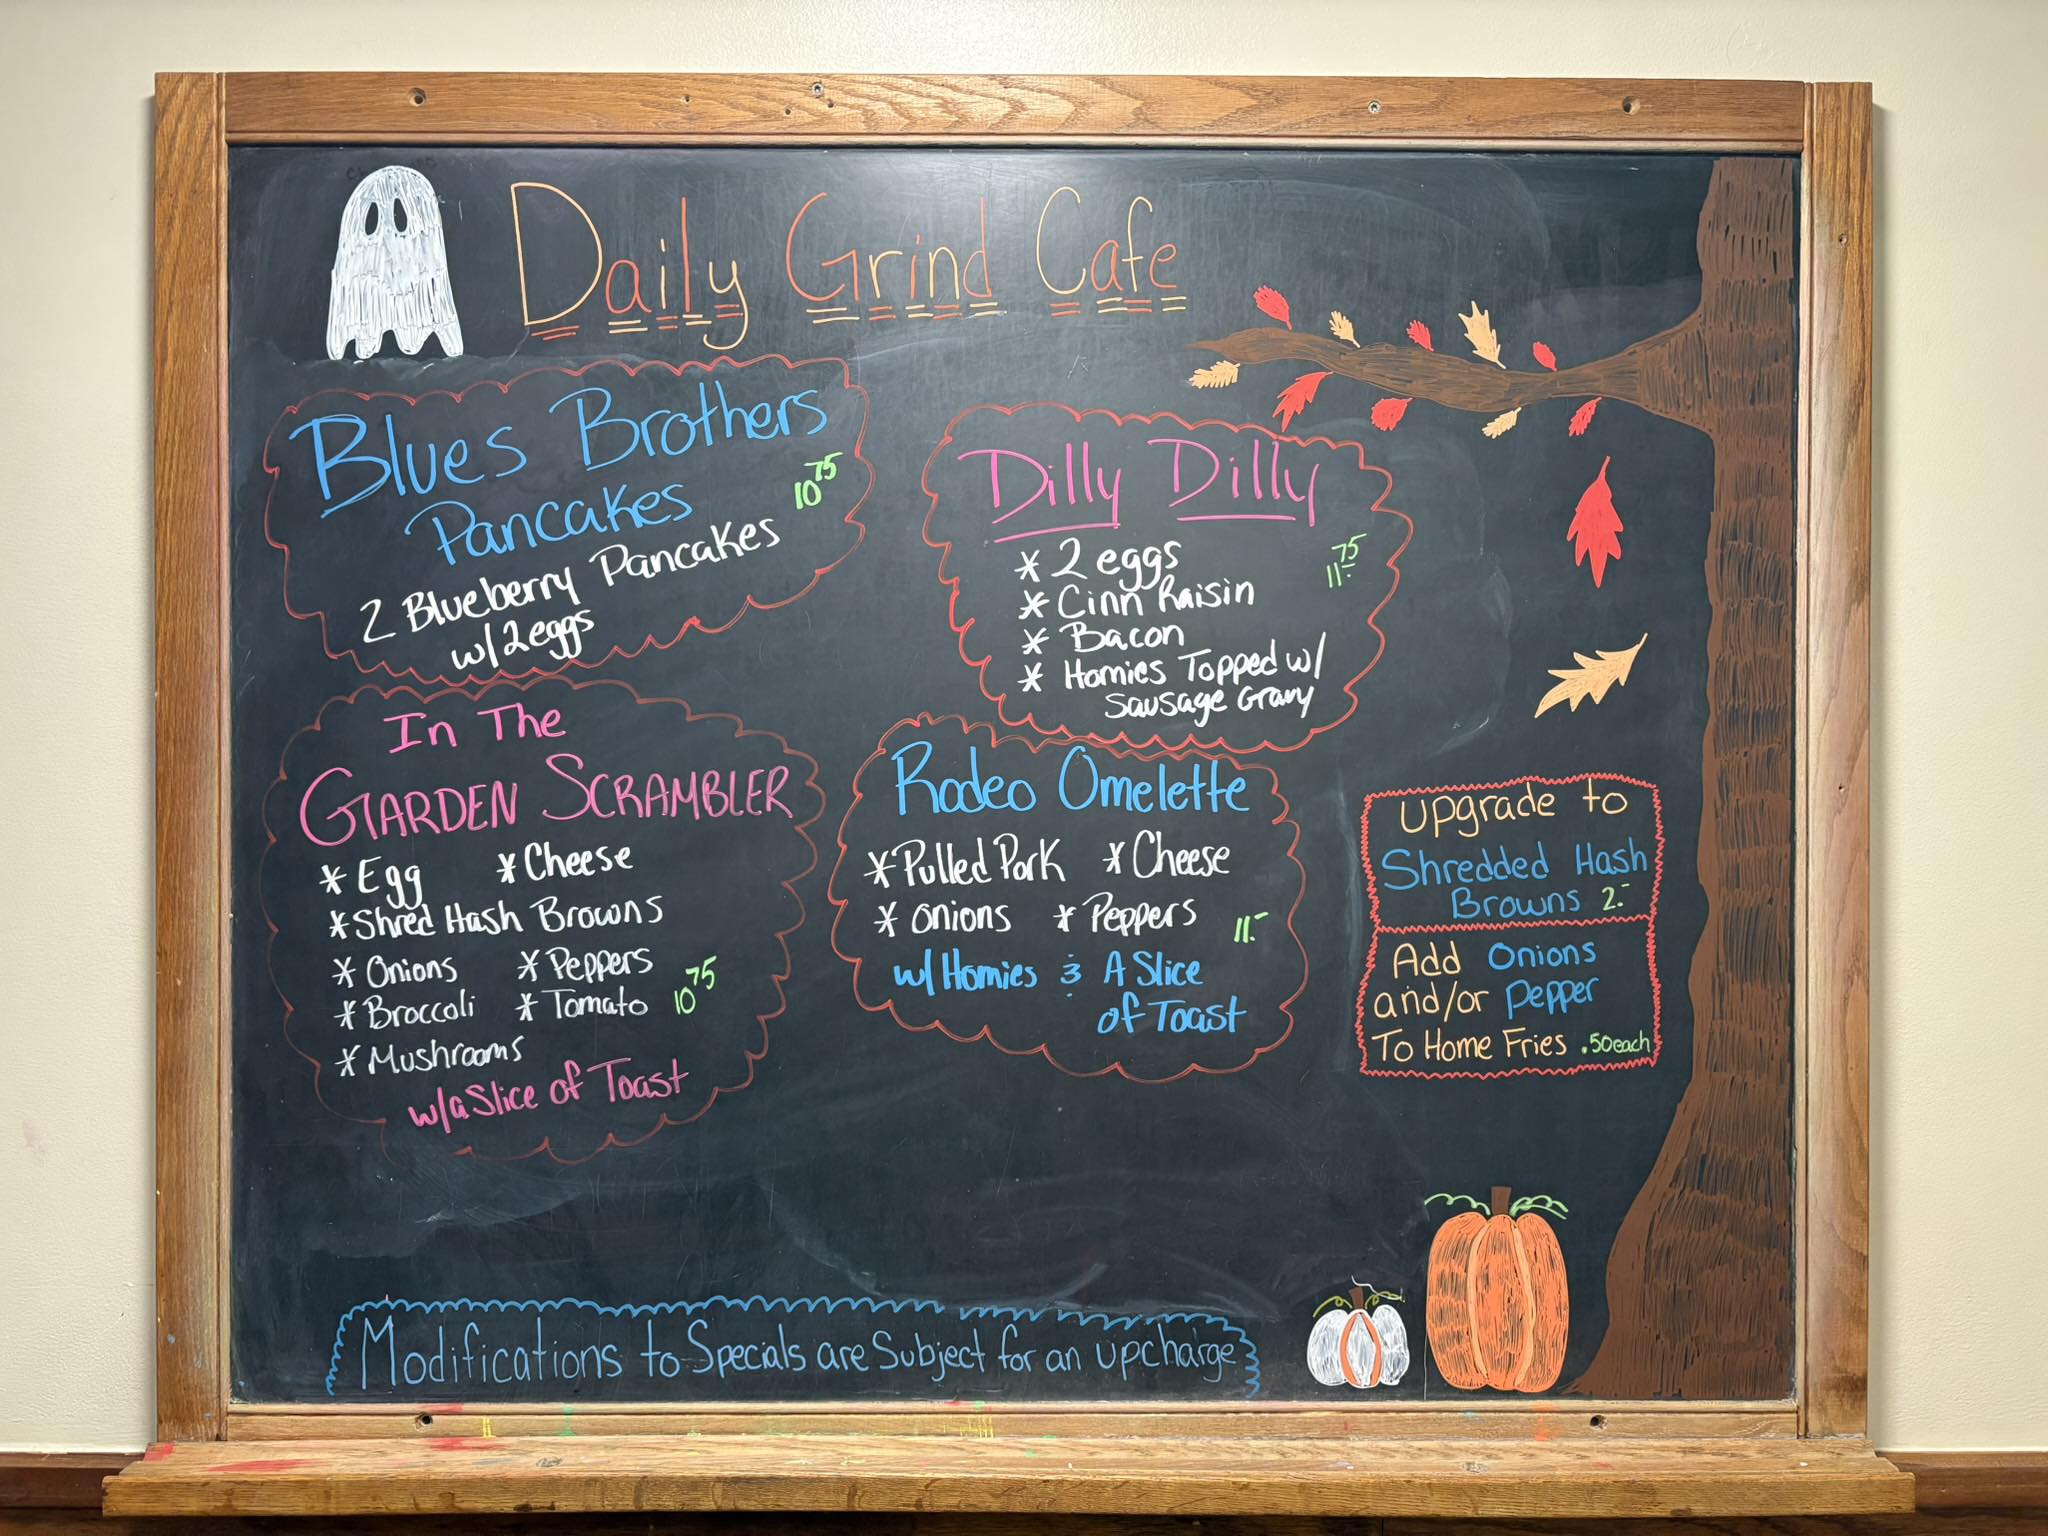 Daily Grind Cafe
Blues Brothers
Pancakes 10.75
2 Blueberry Pancakes
w/ 2 eggs
Dilly Dilly
* 2 eggs 11.75
* Cinn Raisin
* Bacon
* Homies Topped w/
Sausage Gravy
In The
GARDEN SCRAMBLER
* Egg * Cheese
* Shred Hash Browns
* Onions * Peppers
* Broccoli * Tomato 10.75
* Mushrooms
w/a Slice of Toast
Rodeo Omelette
* Pulled Pork * Cheese
* Onions * Peppers 11.-
w/ Homies & A Slice
of Toast
upgrade to
Shredded Hash
Browns 2.-
Add Onions
and/or Pepper
To Home Fries .50 each
Modifications to Specials are Subject for an upcharge